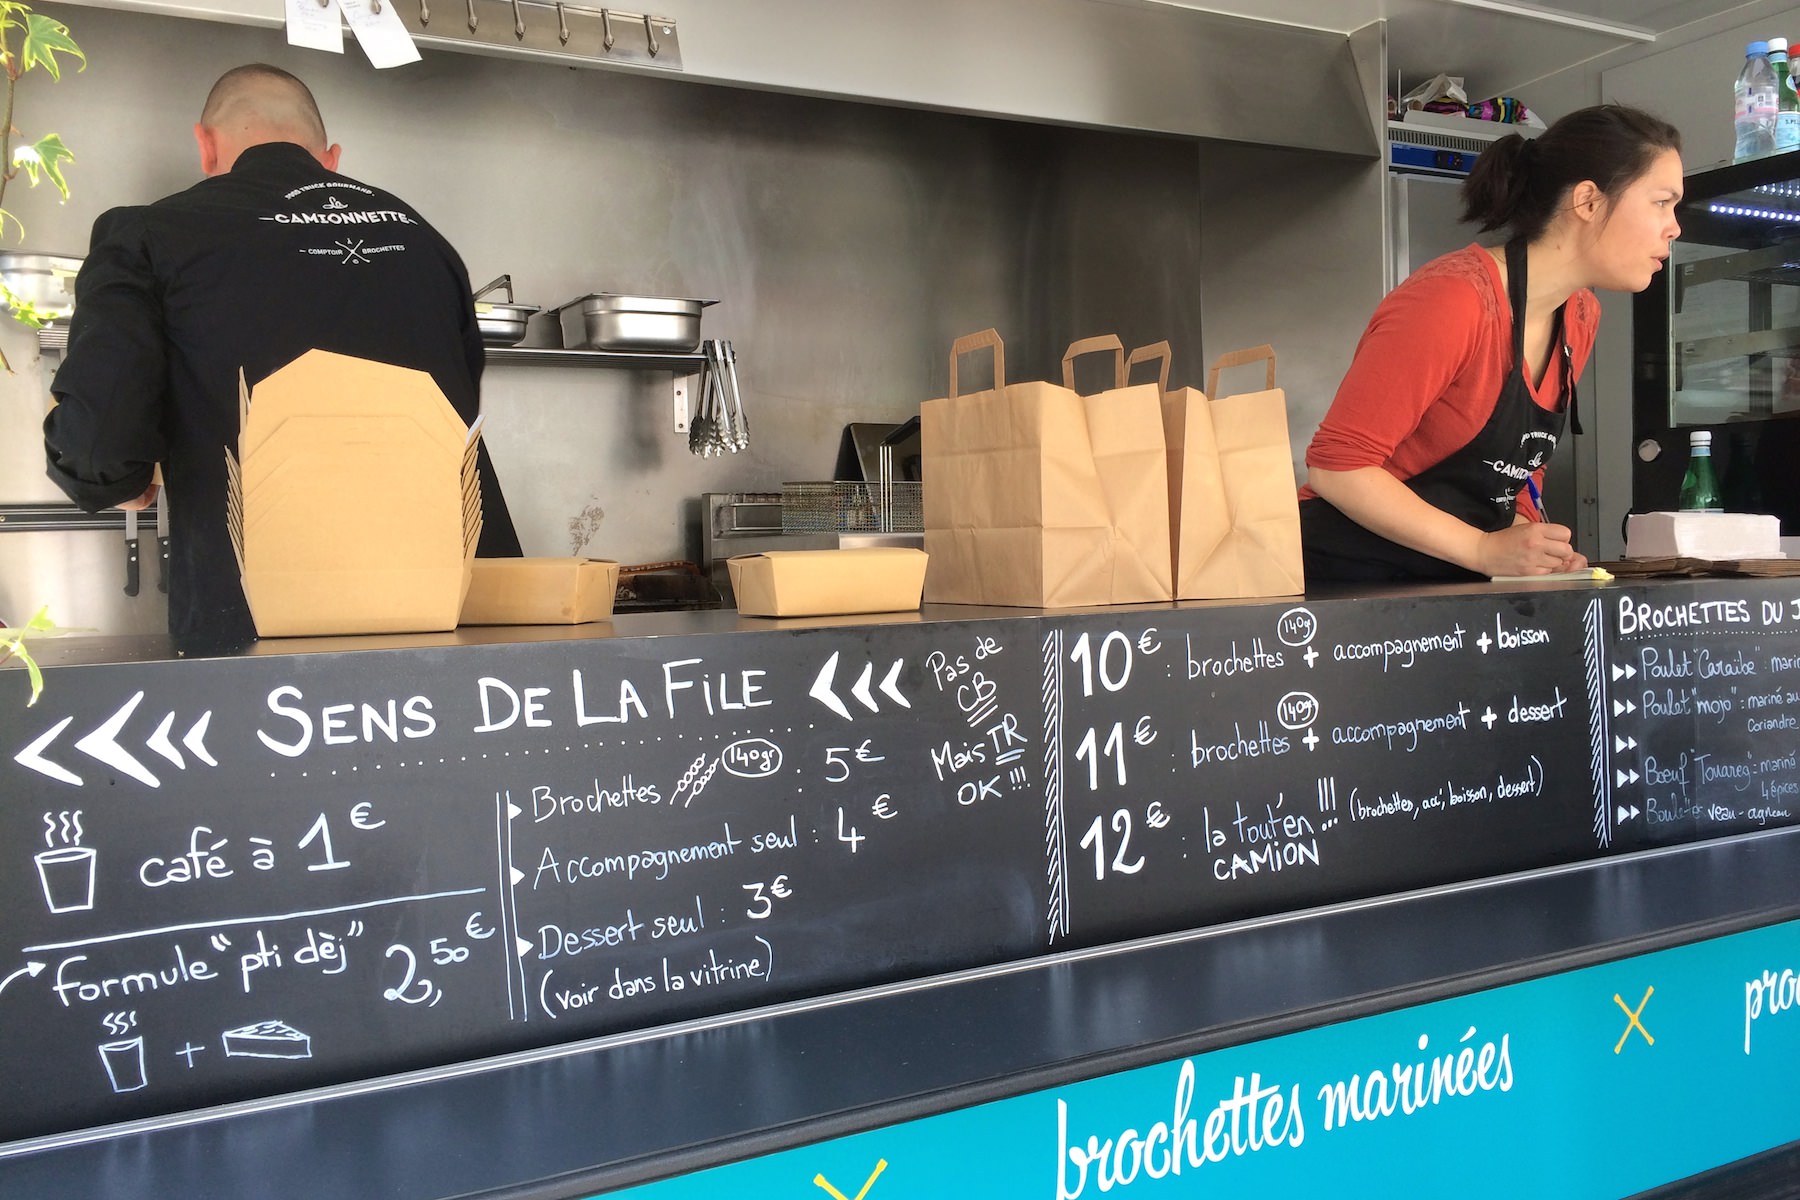 FOOD TRUCK GOURMAND
La
CAMIONNETTE
COMPTOIR À BROCHETTES
La
SENS DE LA FILE
café à 1€
formule "pti dèj" 2,50€
+
Brochettes 140gr : 5€
Accompagnement seul : 4€
Dessert seul : 3€
(voir dans la vitrine)
Pas de
CB
Mais TR
OK !!!
10€ : brochettes 140gr + accompagnement + boisson
11€ : brochettes 140gr + accompagnement + dessert
12€ : la tout'en !!! (brochettes, acc', boisson, dessert)
CAMION
BROCHETTES DU J
Poulet "Caraïbe" : marin
Poulet "mojo" : mariné au
coriandre
Boeuf "Touareg" : mariné
4 épices
Boulettes veau - agneau
brochettes marinées
pro